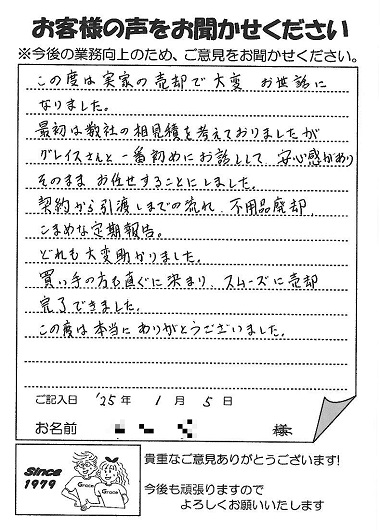 お客様の声をお聞かせください
※今後の業務向上のため、ご意見をお聞かせください。
この度は実家の売却で大変 お世話に
なりました。
最初は数社の相見積を考えておりましたが
グレイスさんと一番初めにお話しして 安心感があり
そのまま お任せすることにしました。
契約から引渡しまでの流れ、不用品廃却、
こまめな定期報告。
どれも大変助かりました。
買い手の方も直ぐに決まり、スムーズに売却
完了できました。
この度は本当に ありがとうございました。
ご記入日 '25年 1月 5日
お名前 様
Since
1979
Grace
Grace
貴重なご意見ありがとうございます!
今後も頑張りますので
よろしくお願いいたします